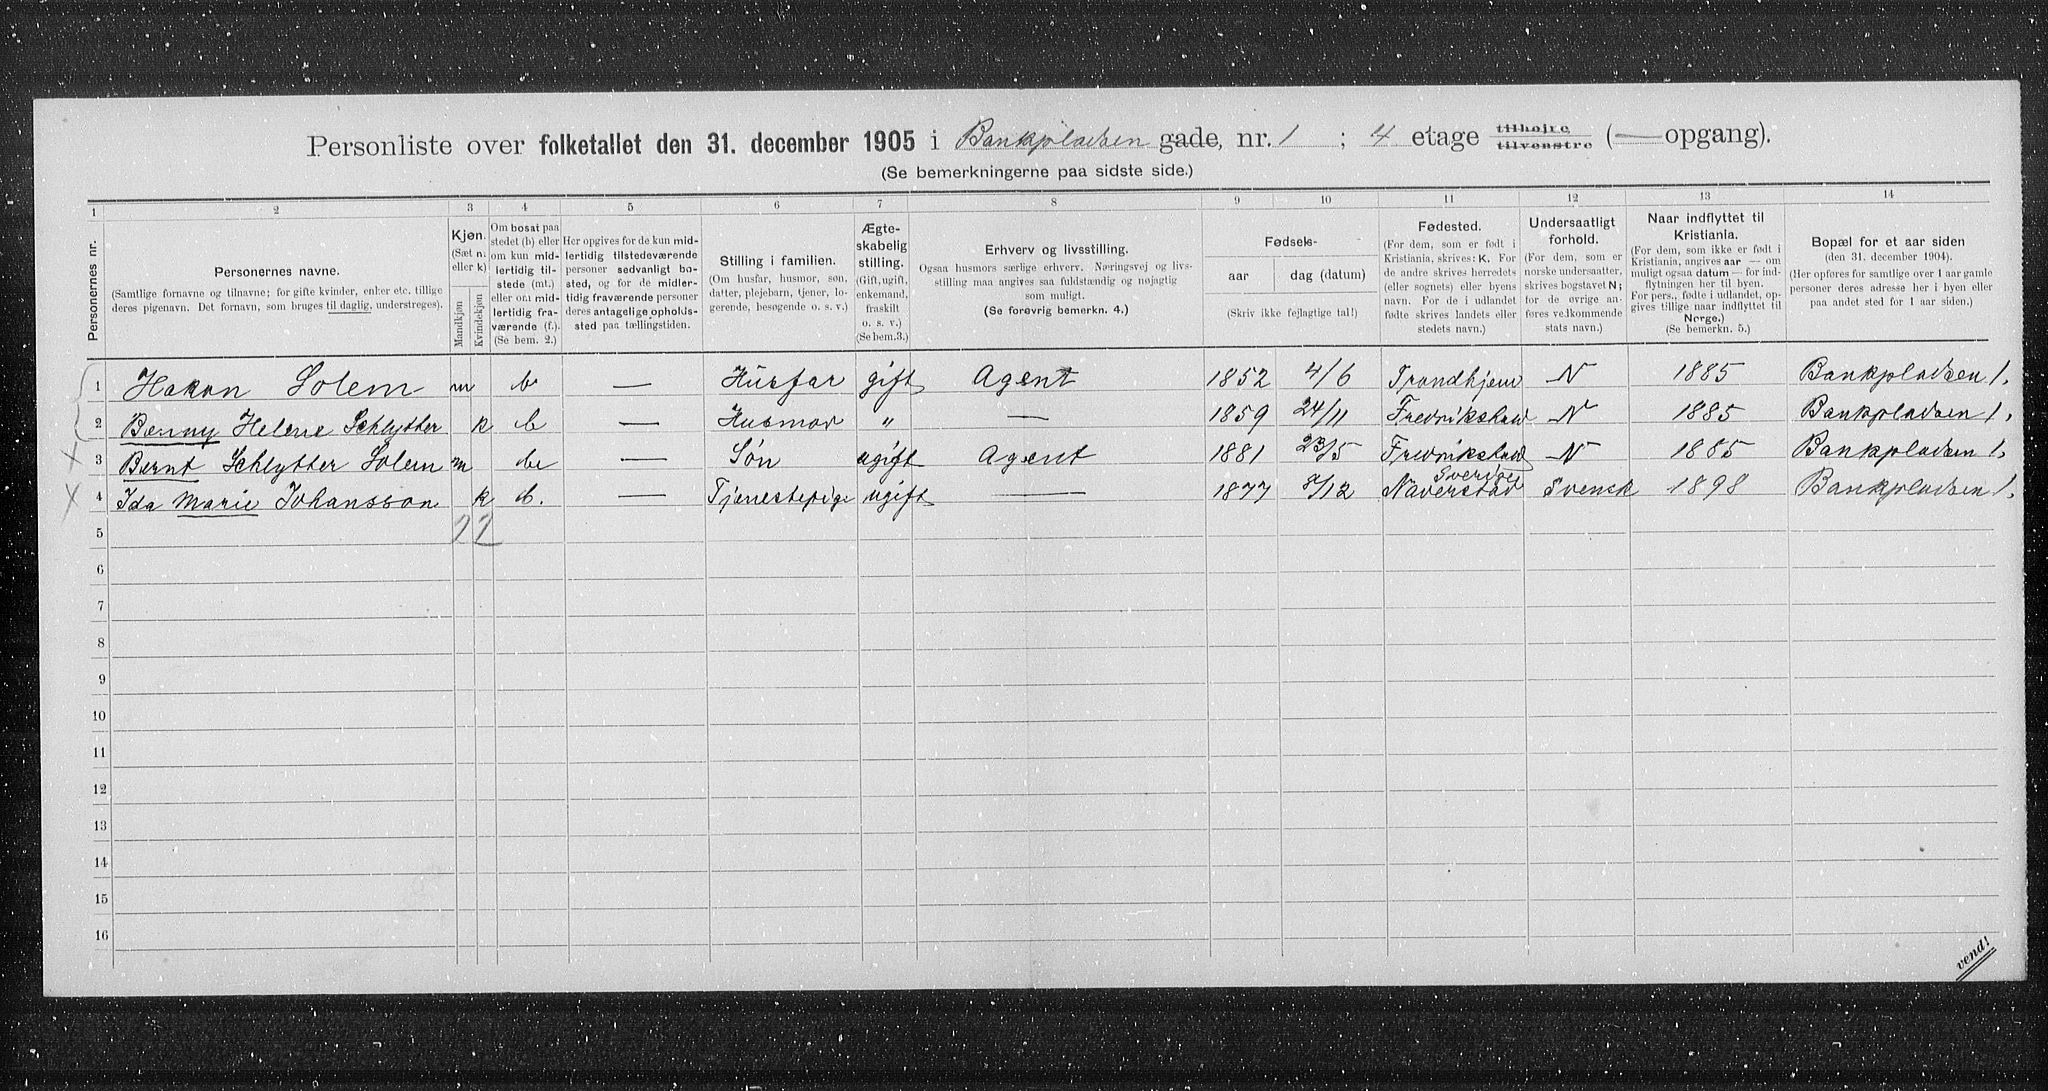 Personliste over folketallet den 31. december 1905 i Bankpladsen gade, nr. 1 ; 4 etage tilhøire tilvenstre (— opgang).
(Se bemerkningerne paa sidste side.)
1 2 3 4 5 6 7 8 9 10 11 12 13 14
Personernes nr.
Personernes navne.
(Samtlige fornavne og tilnavne; for gifte kvinder, enker etc. tillige
deres pigenavn. Det fornavn, som bruges til daglig, understreges).
Kjøn.
(Sæt n.
eller k)
Mandkjøn
Kvindekjøn
Om bosat paa
stedet (b) eller
om kun mid-
lertidig til-
stede (mt.)
eller om mid-
lertidig fra-
værende (f.).
(Se bem. 2.)
Her opgives for de kun mid-
lertidig tilstedeværende
personer sedvanligt bo-
sted, og for de midler-
tidig fraværende personer
deres antagelige opholds-
sted paa tællingstiden.
Stilling i familien.
(Om husfar, husmor, søn,
datter, plejebarn, tjener, lo-
gerende, besøgende o. s. v.)
Ægte-
skabelig
stilling.
(Gift, ugift,
enkemand,
fraskilt
o. s. v.)
(Se bem. 3.)
Erhverv og livsstilling.
Ogsaa husmors særlige erhverv. Næringsvej og livs-
stilling maa angives saa fuldstændig og nøjagtig
som muligt.
(Se forøvrig bemerkn. 4.)
Fødsels-
aar
dag (datum)
(Skriv ikke fejlagtige tal!)
Fødested.
(For dem, som er født i
Kristiania, skrives: K. For
de andre skrives herredets
(eller sognets) eller byens
navn. For de i udlandet
fødte skrives landets eller
stedets navn.)
Undersaatligt
forhold.
(For dem, som er
norske undersaatter,
skrives bogstavet N;
for de øvrige an-
føres vedkommende
stats navn.)
Naar indflyttet til
Kristiania.
(For dem, som ikke er født i
Kristiania, angives aar — om
muligt ogsaa datum — for ind-
flytningen her til byen.
For pers., fødte i udlandet, op-
gives tillige naar indflyttet til
Norge.)
(Se bemerkn. 5.)
Bopæl for et aar siden
(den 31. december 1904).
(Her opføres for samtlige over 1 aar gamle
personer deres adresse her i byen eller
paa andet sted for 1 aar siden.)
1 Hakon Solem m b — Husfar gift Agent 1852 4/6 Trondhjem N 1885 Bankpladsen 1.
2 Benny Helene Schlytter k b — Husmor " — 1859 24/11 Fredrikstad N 1885 Bankpladsen 1.
3 Bernt Schlytter Solem m b — Søn ugift Agent 1881 23/5 Fredrikstad N 1885 Bankpladsen 1.
4 Ida Marie Johansson k b. — Tjenestepige ugift — 1877 /12 Sverige Naverstad Svensk 1898 Bankpladsen 1.
5 2 2
6
7
8
9
10
11
12
13
14
15
16
vend!